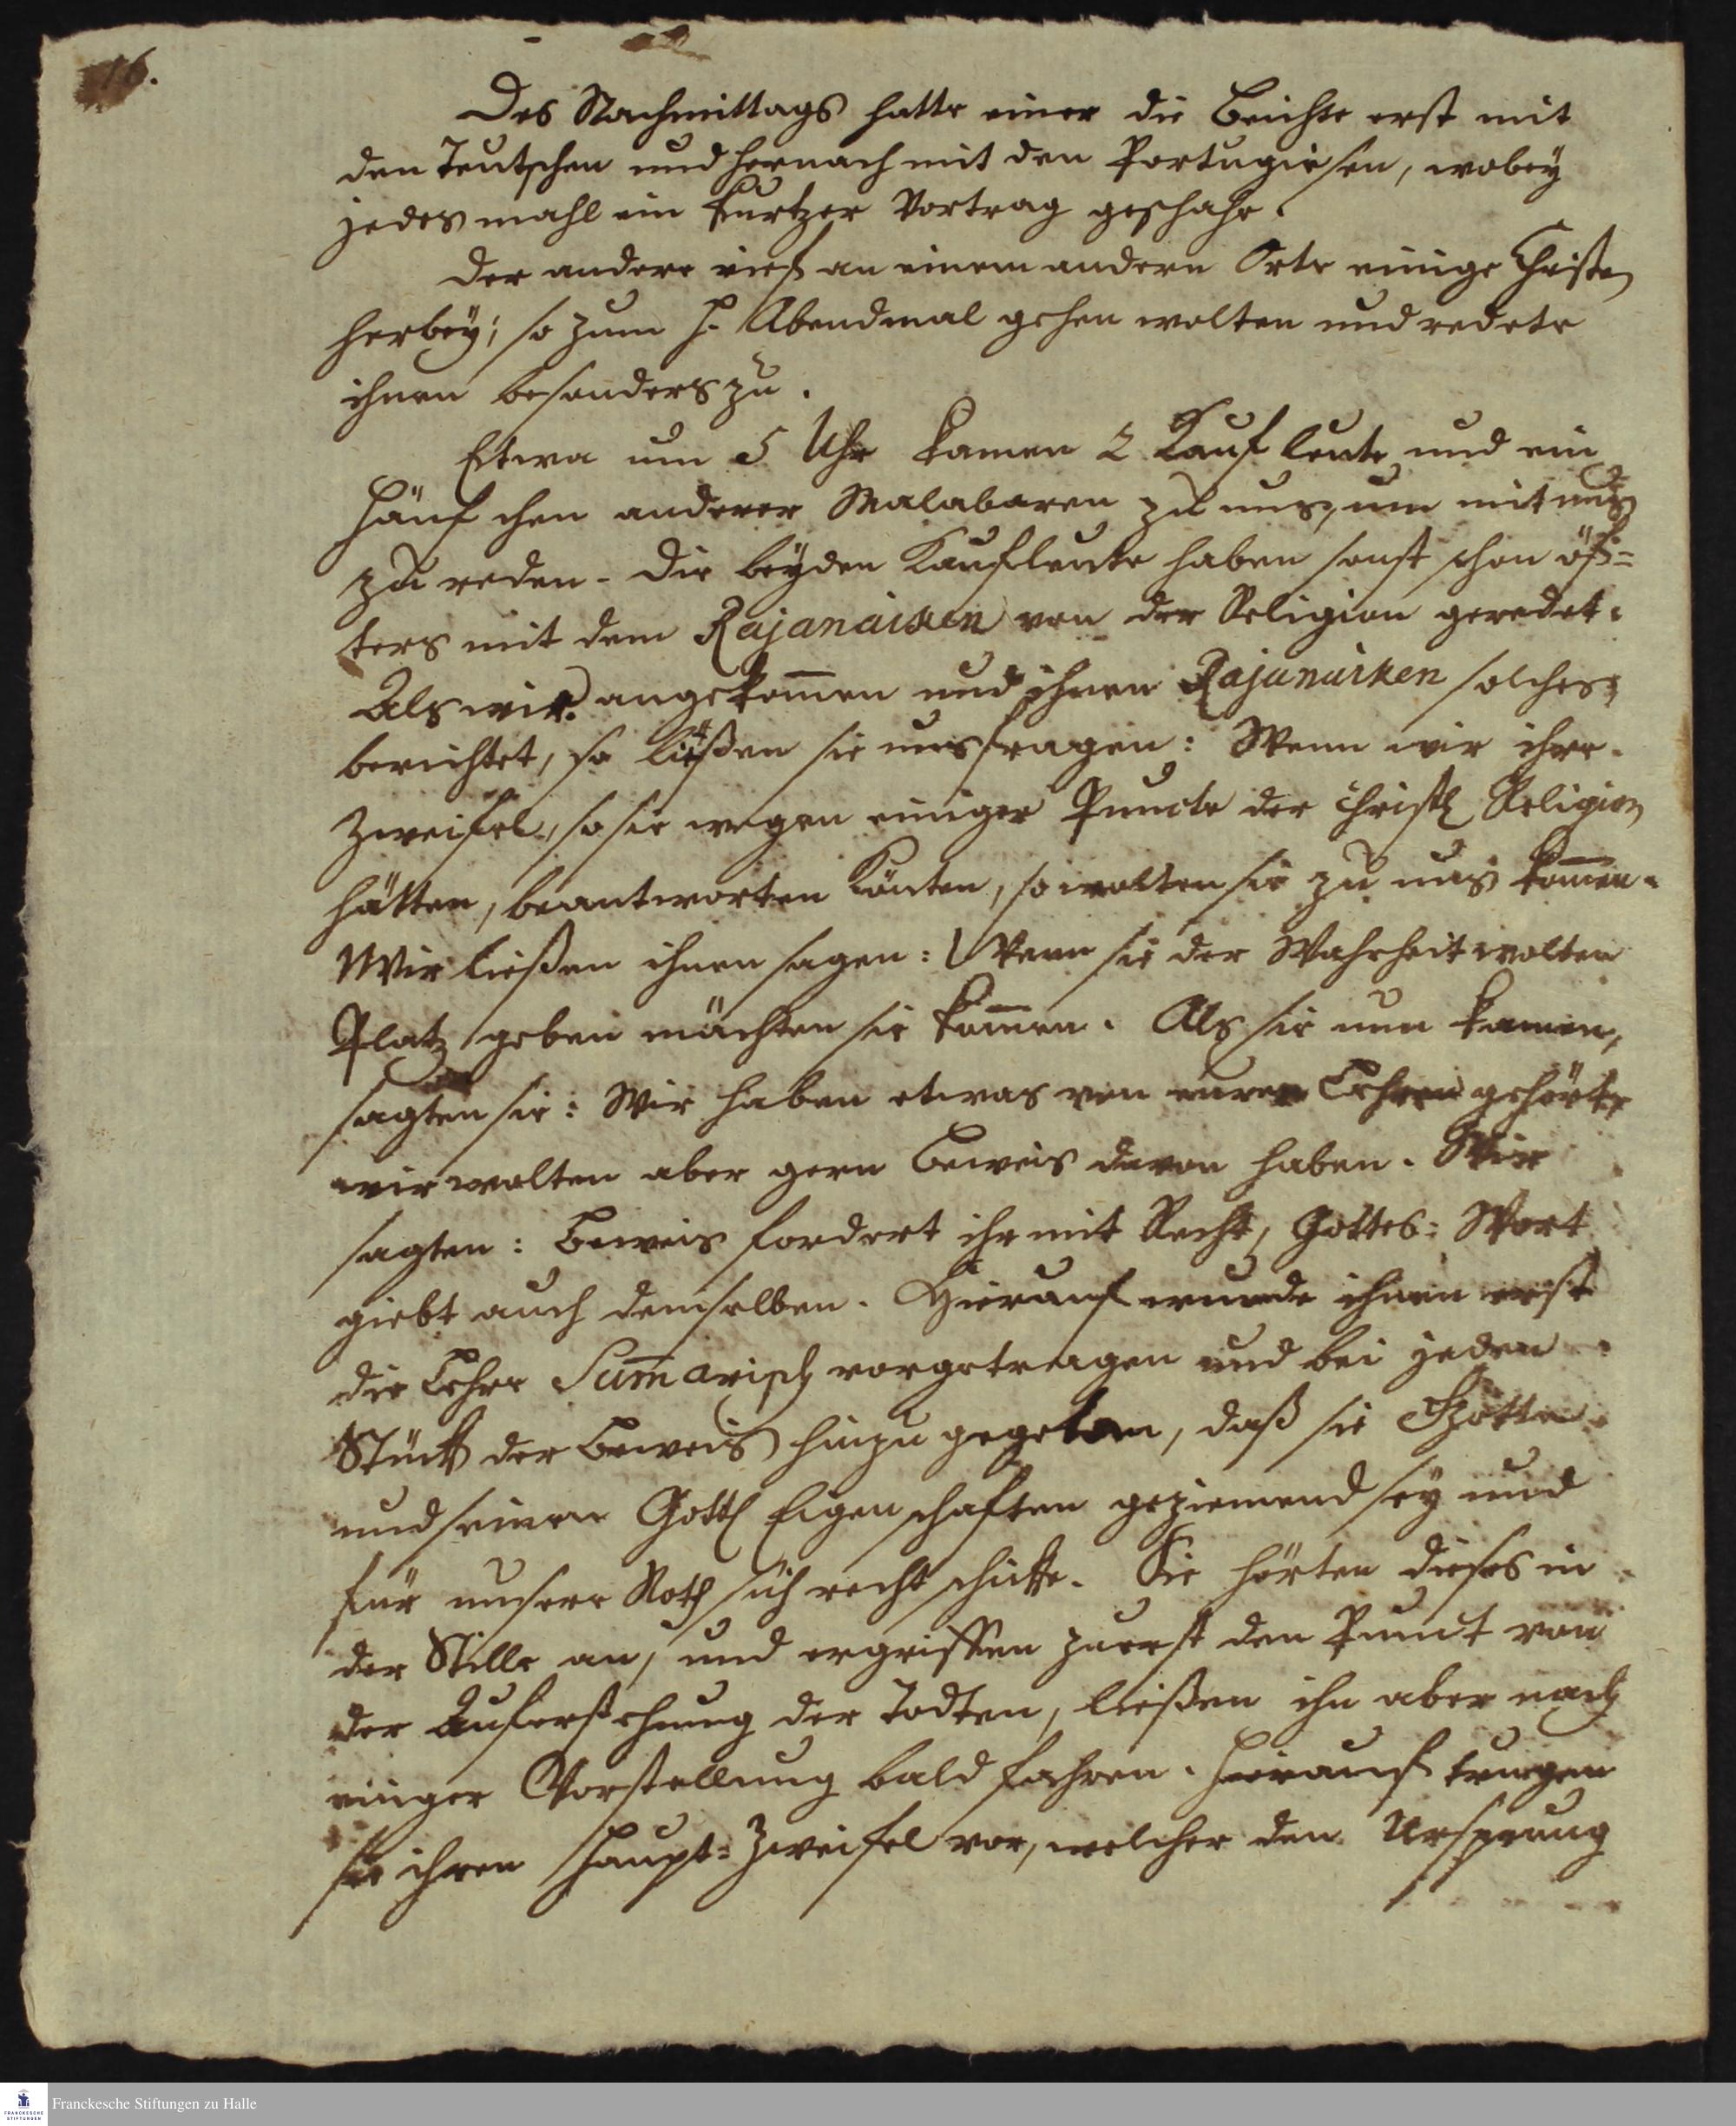 16.
Des Nachmittags hatte einer die Beichte erst mit
den Teutschen und hernach mit den Portugiesen, wobey
jedesmahl ein kurtzer Vortrag geschahe.
Der andere rief an einem andern Orte einige Christen
herbey, so zum H. Abendmal gehen wolten und redete
ihnen besonders zu.
Etwa um 5 Uhr kamen 2 Kaufleute und ein
Häufchen anderer Malabaren zu uns, um mit uns
zu reden. Die beyden Kaufleute haben sonst schon öf=
ters mit dem Rajanaiken von der Religion geredet.
Als wir angekom̅en und ihnen Rajanaiken solches
berichtet, so ließen sie uns fragen: Wenn wir ihre
Zweifel, so sie wegen einiger Puncte der Christl Religion
hätten, beantworten könten, so wolten sie zu uns kom̅en.
Wir ließen ihnen sagen: Wenn sie der Wahrheit wolten
Platz geben möchten sie kom̅en. Als sie nun kamen,
sagten sie: Wir haben etwas von eurer Lehre gehört,
wir wolten aber gern Beweis davon haben. Wir
sagten: Beweis fordert ihr mit Recht, Gottes=Wort
giebt auch denselben. Hierauf wurde ihnen erst
die Lehre Sum̅arisch vorgetragen und bei jeden
Stück der Beweis hinzu gegeben, daß sie Gotte
und seinen Göttl Eigenschaften geziemend sey und
für unsere Noth sich recht schicke. Sie hörten dieses in
der Stille an, und ergriffen zuerst den Punct von
der Auferstehung der Todten, ließen ihn aber nach
einiger Vorstellung bald fahren. Hierauf trugen
sie ihren Haupt=Zweifel vor, welcher den Ursprung
Franckesche Stiftungen zu Halle
FRANCKESCHE
STIFTUNGEN